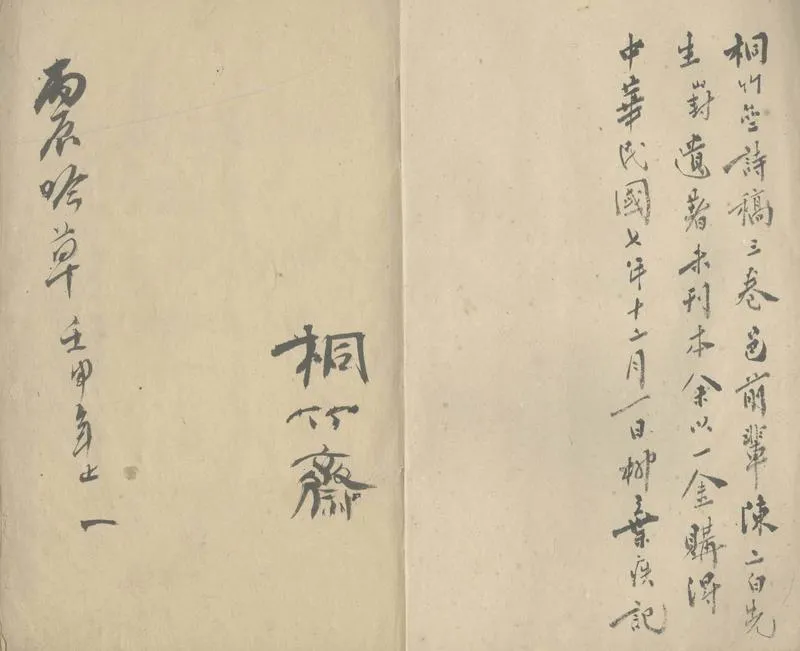 桐竹亝詩稿三卷邑前輩陳二白先
生遺著未刊本余以一金購得
中華民國七年十二月一日柳棄疾記
桐竹齋
丙辰吟草 壬申年止 一